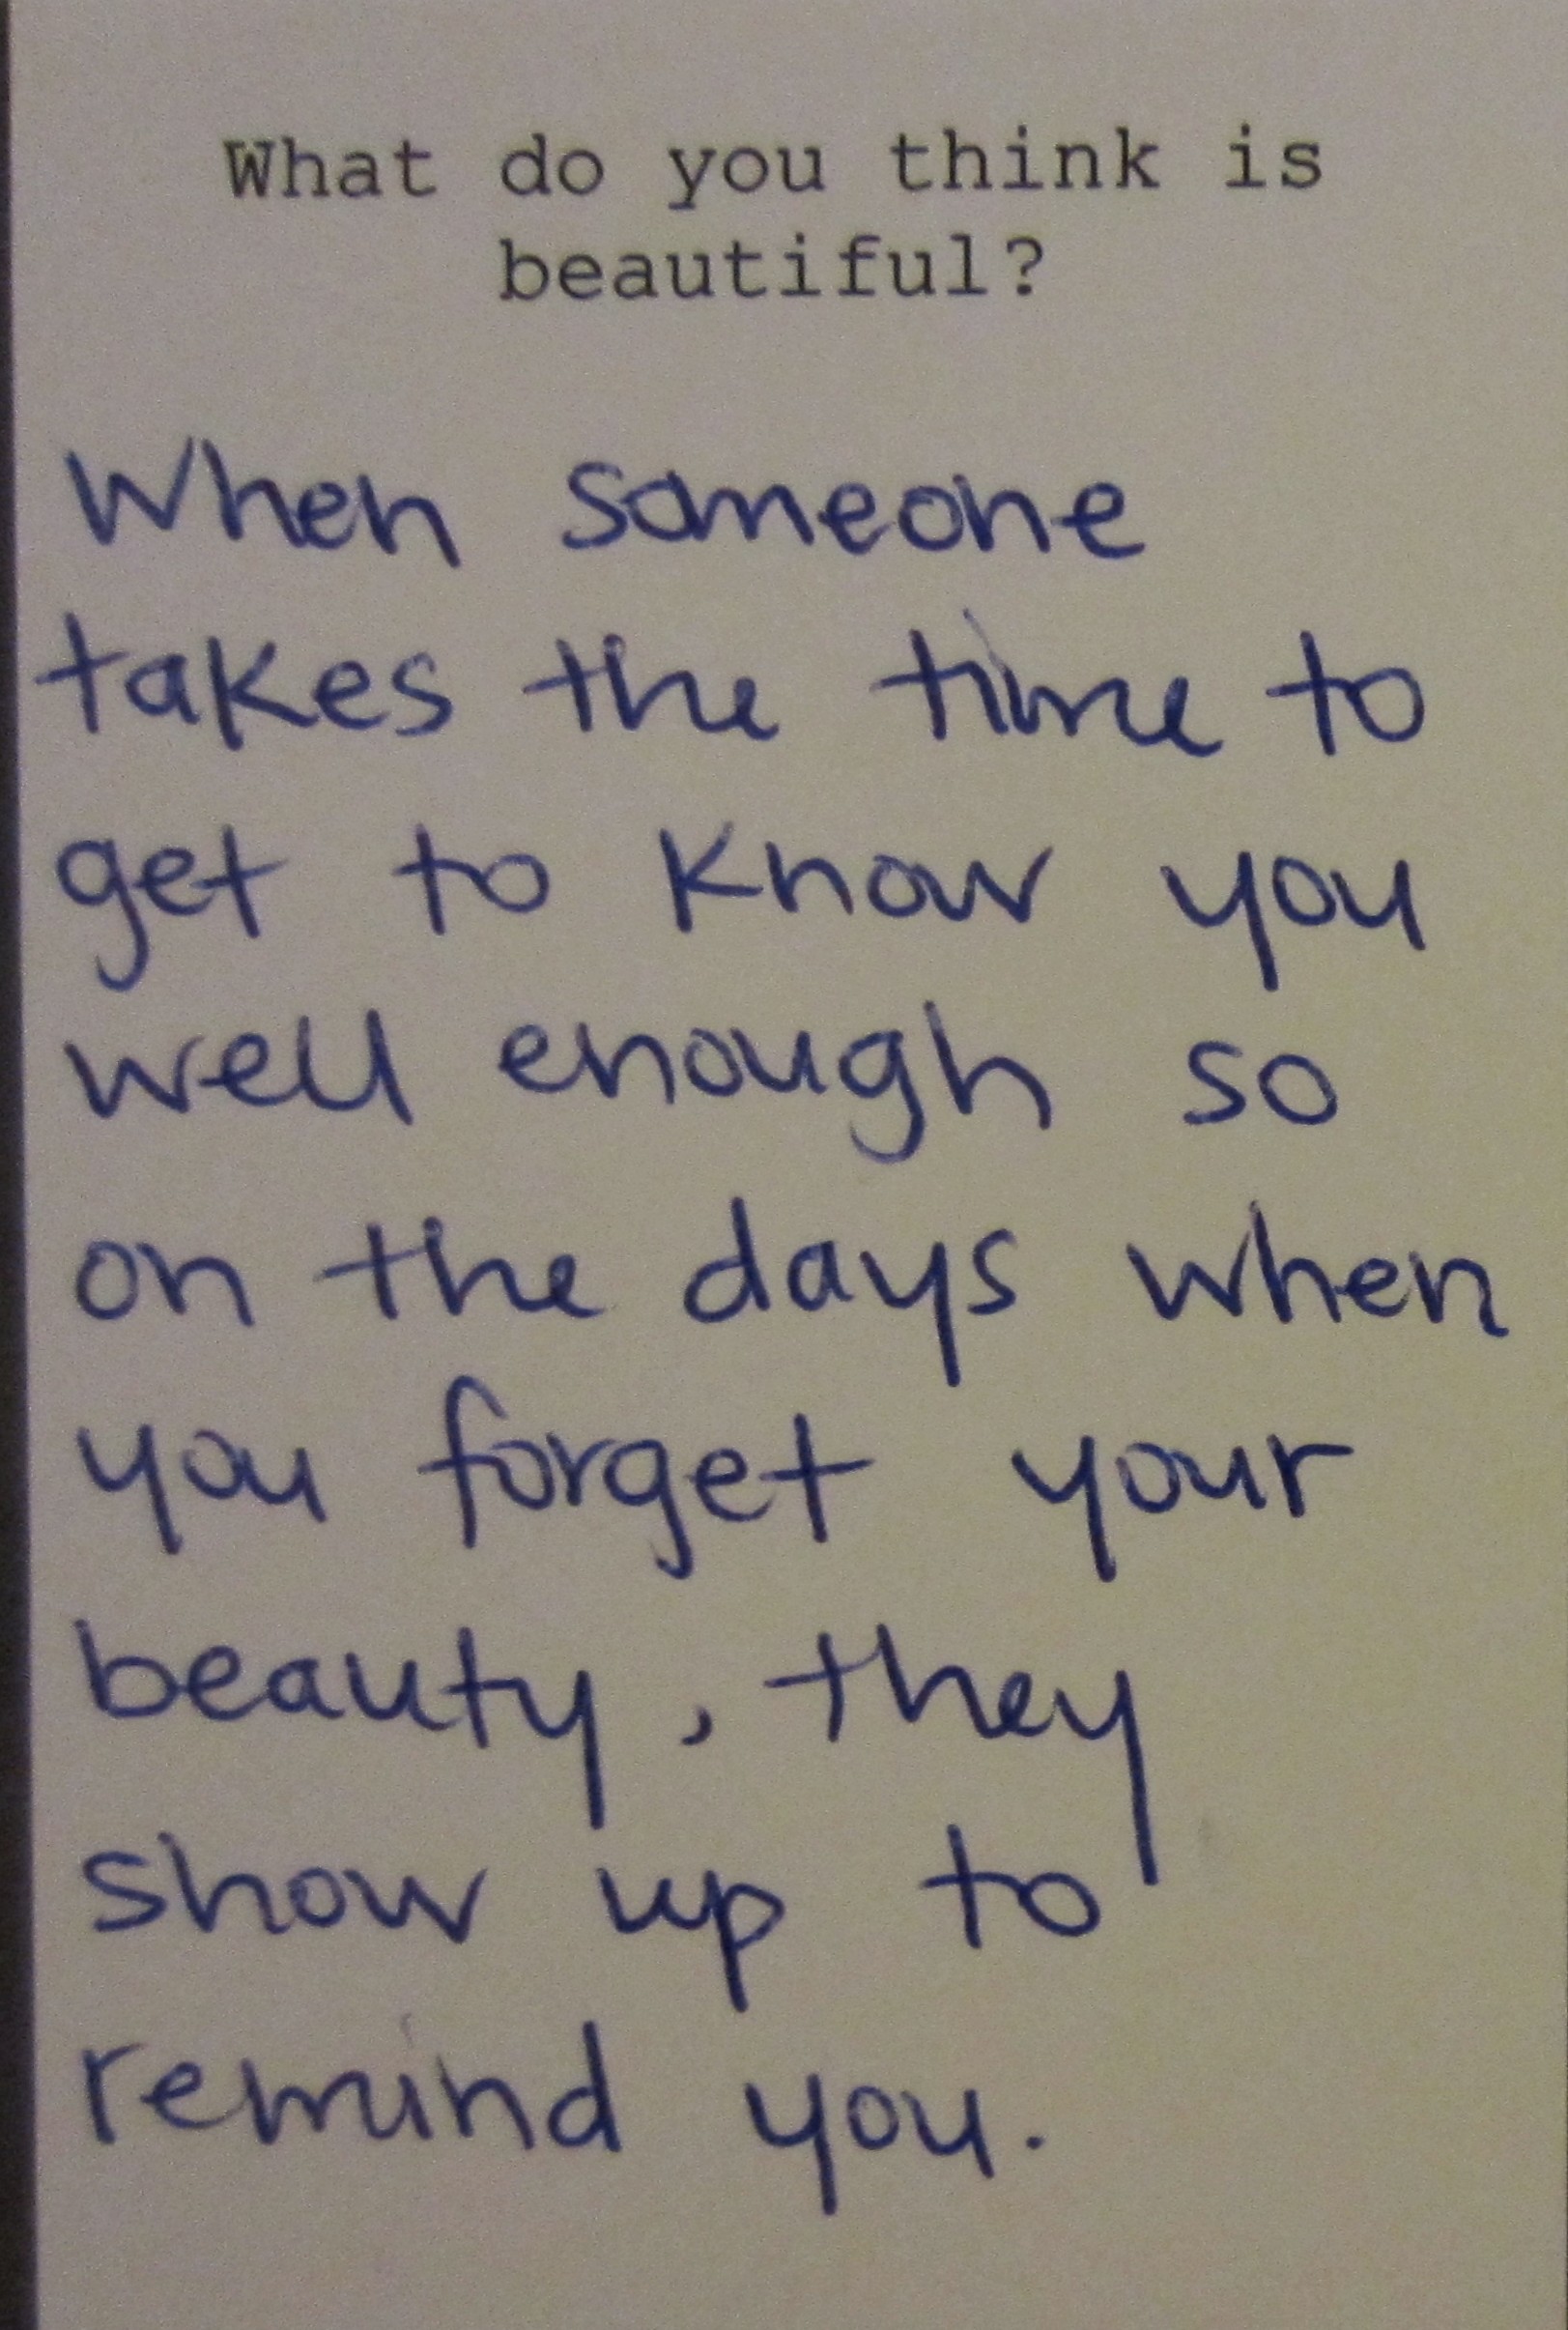 What do you think is
beautiful?
When someone
takes the time to
get to know you
well enough so
on the days when
you forget your
beauty, they
show up to
remind you.